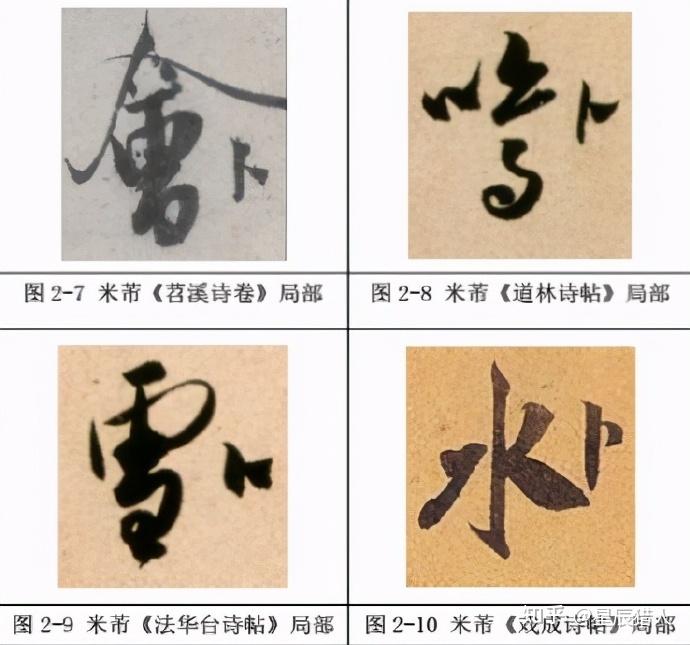 會卜
鳴卜
图 2-7 米芾《苕溪诗卷》局部
图 2-8 米芾《道林诗帖》局部
雪卜
水卜
图 2-9 米芾《法华台诗帖》局部
图 2-10 米芾《戏成诗帖》局部
知乎 @星辰猎人